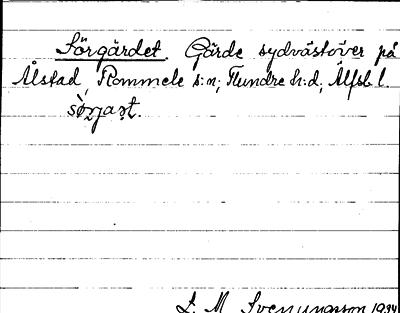 Sörgärdet. Gärde sydvästöver på
Ålstad, Rommele s:n; Flundre h:d, Älfsb l.
L. M. Svenungsson 1934